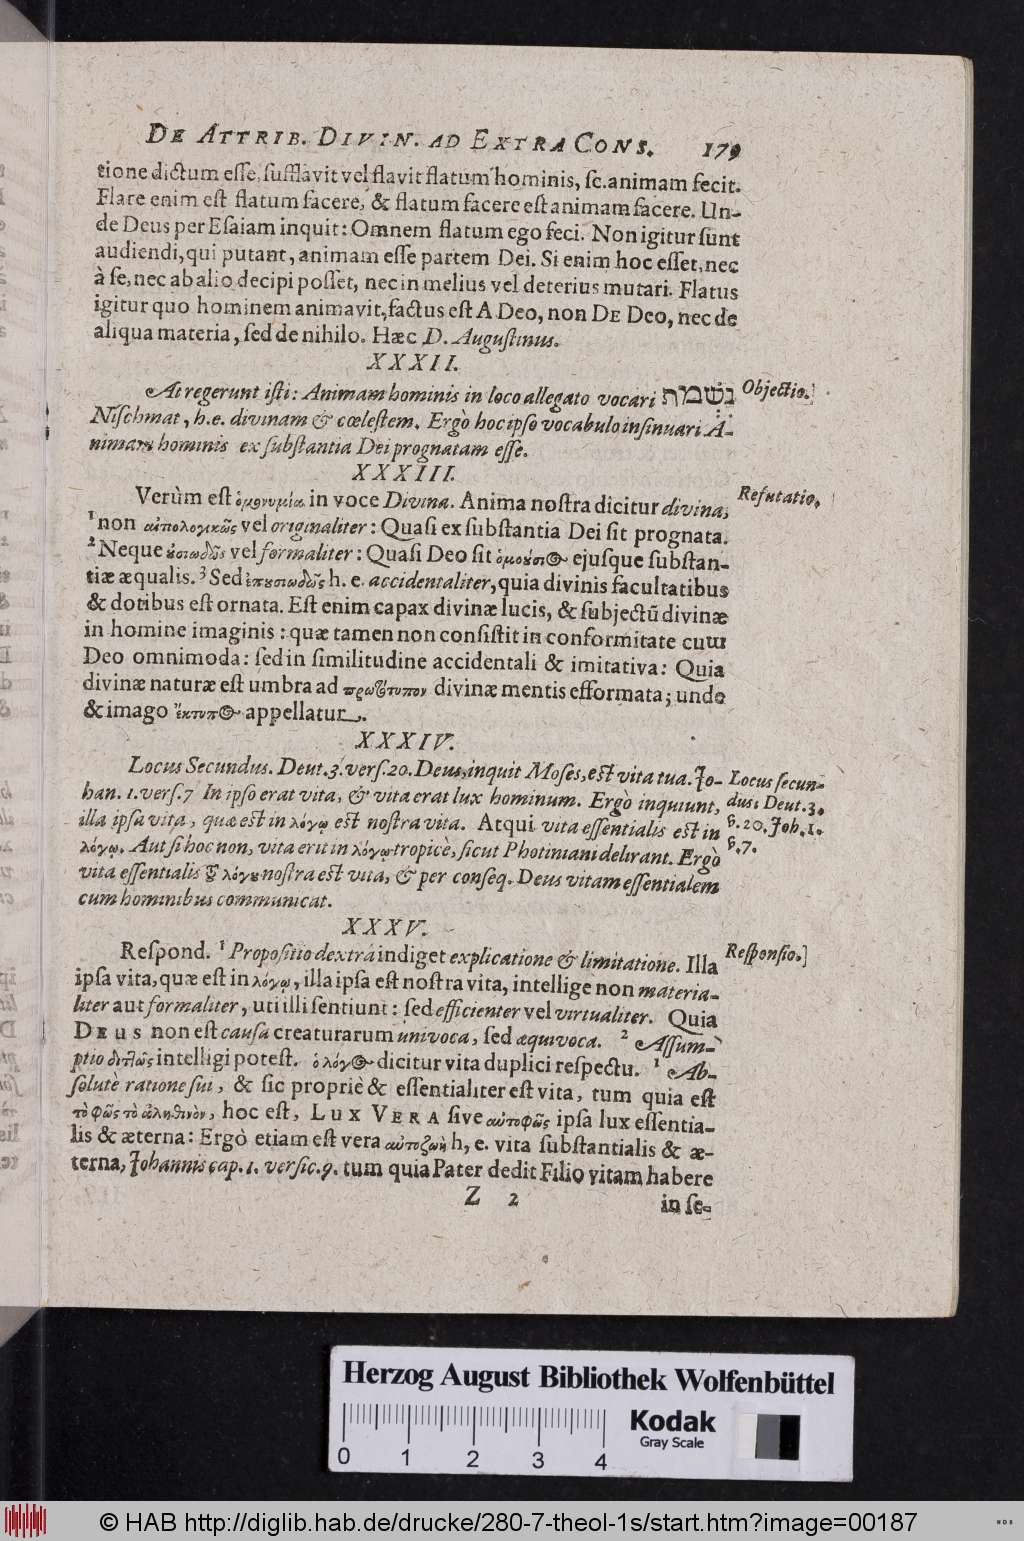 DE ATTRIB. DIVIN. AD EXTRA CONS. 179
tione dictum eſſe, ſufflavit vel flavit flatum hominis, ſc. animam fecit.
Flare enim eſt flatum facere, & flatum facere eſt animam facere. Un-
de Deus per Eſaiam inquit: Omnem flatum ego feci. Non igitur ſunt
audiendi, qui putant, animam eſſe partem Dei. Si enim hoc eſſet, nec
à ſe, nec ab alio decipi poſſet, nec in melius vel deterius mutari. Flatus
igitur quo hominem animavit, factus eſt A Deo, non DE Deo, nec de
aliqua materia, ſed de nihilo. Hæc D. Auguſtinus.
XXXII.
At regerunt iſti: Animam hominis in loco allegato vocari נִשְׁמַת Objectio.]
Niſchmat, h.e. divinam & cœleſtem. Ergò hoc ipſo vocabulo inſinuari A-
nimam hominis ex ſubſtantia Dei prognatam eſſe.
XXXIII.
Verùm eſt ὁμωνυμία in voce Divina. Anima noſtra dicitur divina, Refutatio.
¹non αἰτιολογικῶς vel originaliter: Quaſi ex ſubſtantia Dei ſit prognata.
²Neque ȣσιωδῶς vel formaliter: Quaſi Deo ſit ὁμοȣ́σι⊙ ejuſque ſubſtan-
tiæ æqualis. ³Sed ἐπȣσιωδῶς h. e. accidentaliter, quia divinis facultatibus
& dotibus eſt ornata. Eſt enim capax divinæ lucis, & ſubjectū divinæ
in homine imaginis: quæ tamen non conſiſtit in conformitate cum
Deo omnimoda: ſed in ſimilitudine accidentali & imitativa: Quia
divinæ naturæ eſt umbra ad πρωτότυπον divinæ mentis efformata; unde
& imago ἔκτυπ⊙ appellatur.
XXXIV.
Locus Secundus. Deut. 3. verſ. 20. Deus, inquit Moſes, eſt vita tua. Jo- Locus ſecun-
han. 1. verſ. 7 In ipſo erat vita, & vita erat lux hominum. Ergò inquiunt, dus: Deut. 3.
illa ipſa vita, quæ eſt in λόγῳ eſt noſtra vita. Atqui vita eſſentialis eſt in v. 20. Joh. 1.
λόγῳ. Aut ſi hoc non, vita erit in λόγῳ tropicè, ſicut Photiniani delirant. Ergò v. 7.
vita eſſentialis τȣ͂ λόγȣ noſtra eſt vita, & per conſeq. Deus vitam eſſentialem
cum hominibus communicat.
XXXV.
Reſpond. ¹ Propoſitio dextrâ indiget explicatione & limitatione. Illa Reſponſio.]
ipſa vita, quæ eſt in λόγῳ, illa ipſa eſt noſtra vita, intellige non materia-
liter aut formaliter, uti illi ſentiunt: ſed efficienter vel virtualiter. Quia
DEUS non eſt cauſa creaturarum univoca, ſed æquivoca. ² Aſſum-
ptio διττῶς intelligi poteſt. ὁ λόγ⊙ dicitur vita duplici reſpectu. ¹ Ab-
ſolutè ratione ſui, & ſic propriè & eſſentialiter eſt vita, tum quia eſt
τὸ φῶς τὸ ἀληθινὸν, hoc eſt, LUX VERA ſive αὐτοφῶς ipſa lux eſſentia-
lis & æterna: Ergò etiam eſt vera αὐτοζωὴ h, e. vita ſubſtantialis & æ-
terna, Johannis cap. 1. verſic. 9. tum quia Pater dedit Filio vitam habere
Z 2 in ſe-
Herzog August Bibliothek Wolfenbüttel
Kodak
Gray Scale
0 1 2 3 4
© HAB http://diglib.hab.de/drucke/280-7-theol-1s/start.htm?image=00187